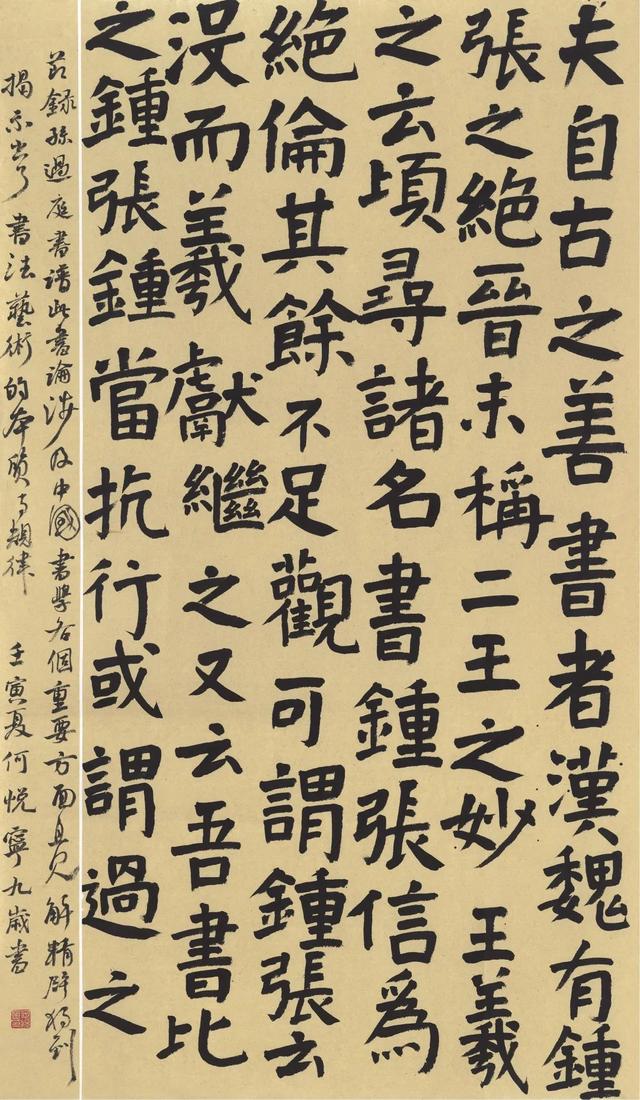 夫自古之善書者漢魏有鍾
張之絕晉末稱二王之妙王羲
之云頃尋諸名書鍾張信爲
絕倫其餘不足觀可謂鍾張云
沒而羲獻繼之又云吾書比
之鍾張鍾當抗行或謂過之
節錄孫過庭書譜此書論涉及中國書學各個重要方面見解精辟獨到
揭示出了書法藝術的本質与規律 壬寅夏何悅寧九歲書